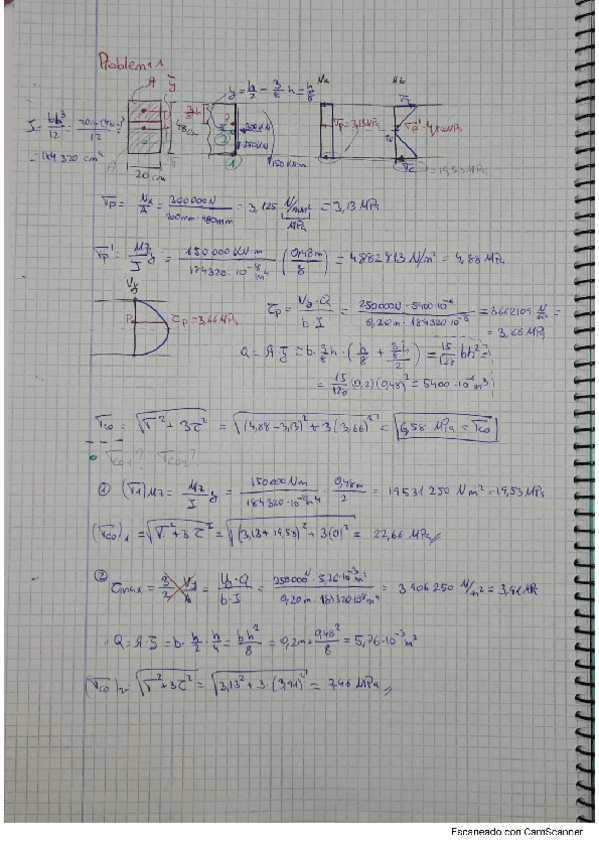 Problema 1
A
y = h/2 - 3/8 h = h/8
I = bh³/12 = 20cm(48cm)³/12
= 184320 cm⁴
20 cm
48cm
300KN
250KN
150KN·m
σp=3,13MPa
= 19,53MPa
σp = Nx/A = 300000N/200mm·480mm = 3,125 N/mm² = 3,13 MPa
MPa
σp' = Mz/I y = 150000 KN·m/184320·10⁻⁸ m⁴ (0,48m/8) = 4882813 N/m² = 4,88 MPa
Vy
P
τp=3,66MPa
τp = Vy·Q/b·I = 250000N·5400·10⁻⁶/0,20m·184320·10⁻⁸ = 3662109 N/m² =
= 3,66 MPa
Q = A·ȳ = b·3/8h·(h/8 + 3/8h/2) = 15/128 bh² =
= 15/128 (0,2)(0,48)² = 5400·10⁻⁶ m³
σco = √σ² + 3τ² = √(4,88-3,13)² + 3(3,66)² = 6,58 MPa = σco
σco1? σco2?
① (σ1)Mz = Mz/I y = 150000Nm/184320·10⁻⁸m⁴ · 0,48m/2 = 19531250 N/m² = 19,53 MPa
(σco)1 = √σ² + 3τ² = √(3,13+19,53)² + 3(0)² = 22,66 MPa
② τmax = 3/2 Vy/A = Vy·Q/b·I = 250000N·5,76·10⁻³m³/0,20m·184320·10⁻⁸m⁴ = 3906250 N/m² = 3,91 MPa
Q = A·ȳ = b·h/2·h/4 = bh²/8 = 0,2m·0,48²/8 = 5,76·10⁻³ m³
(σco)2 = √σ² + 3τ² = √3,13² + 3·(3,91)² = 7,46 MPa
Escaneado con CamScanner